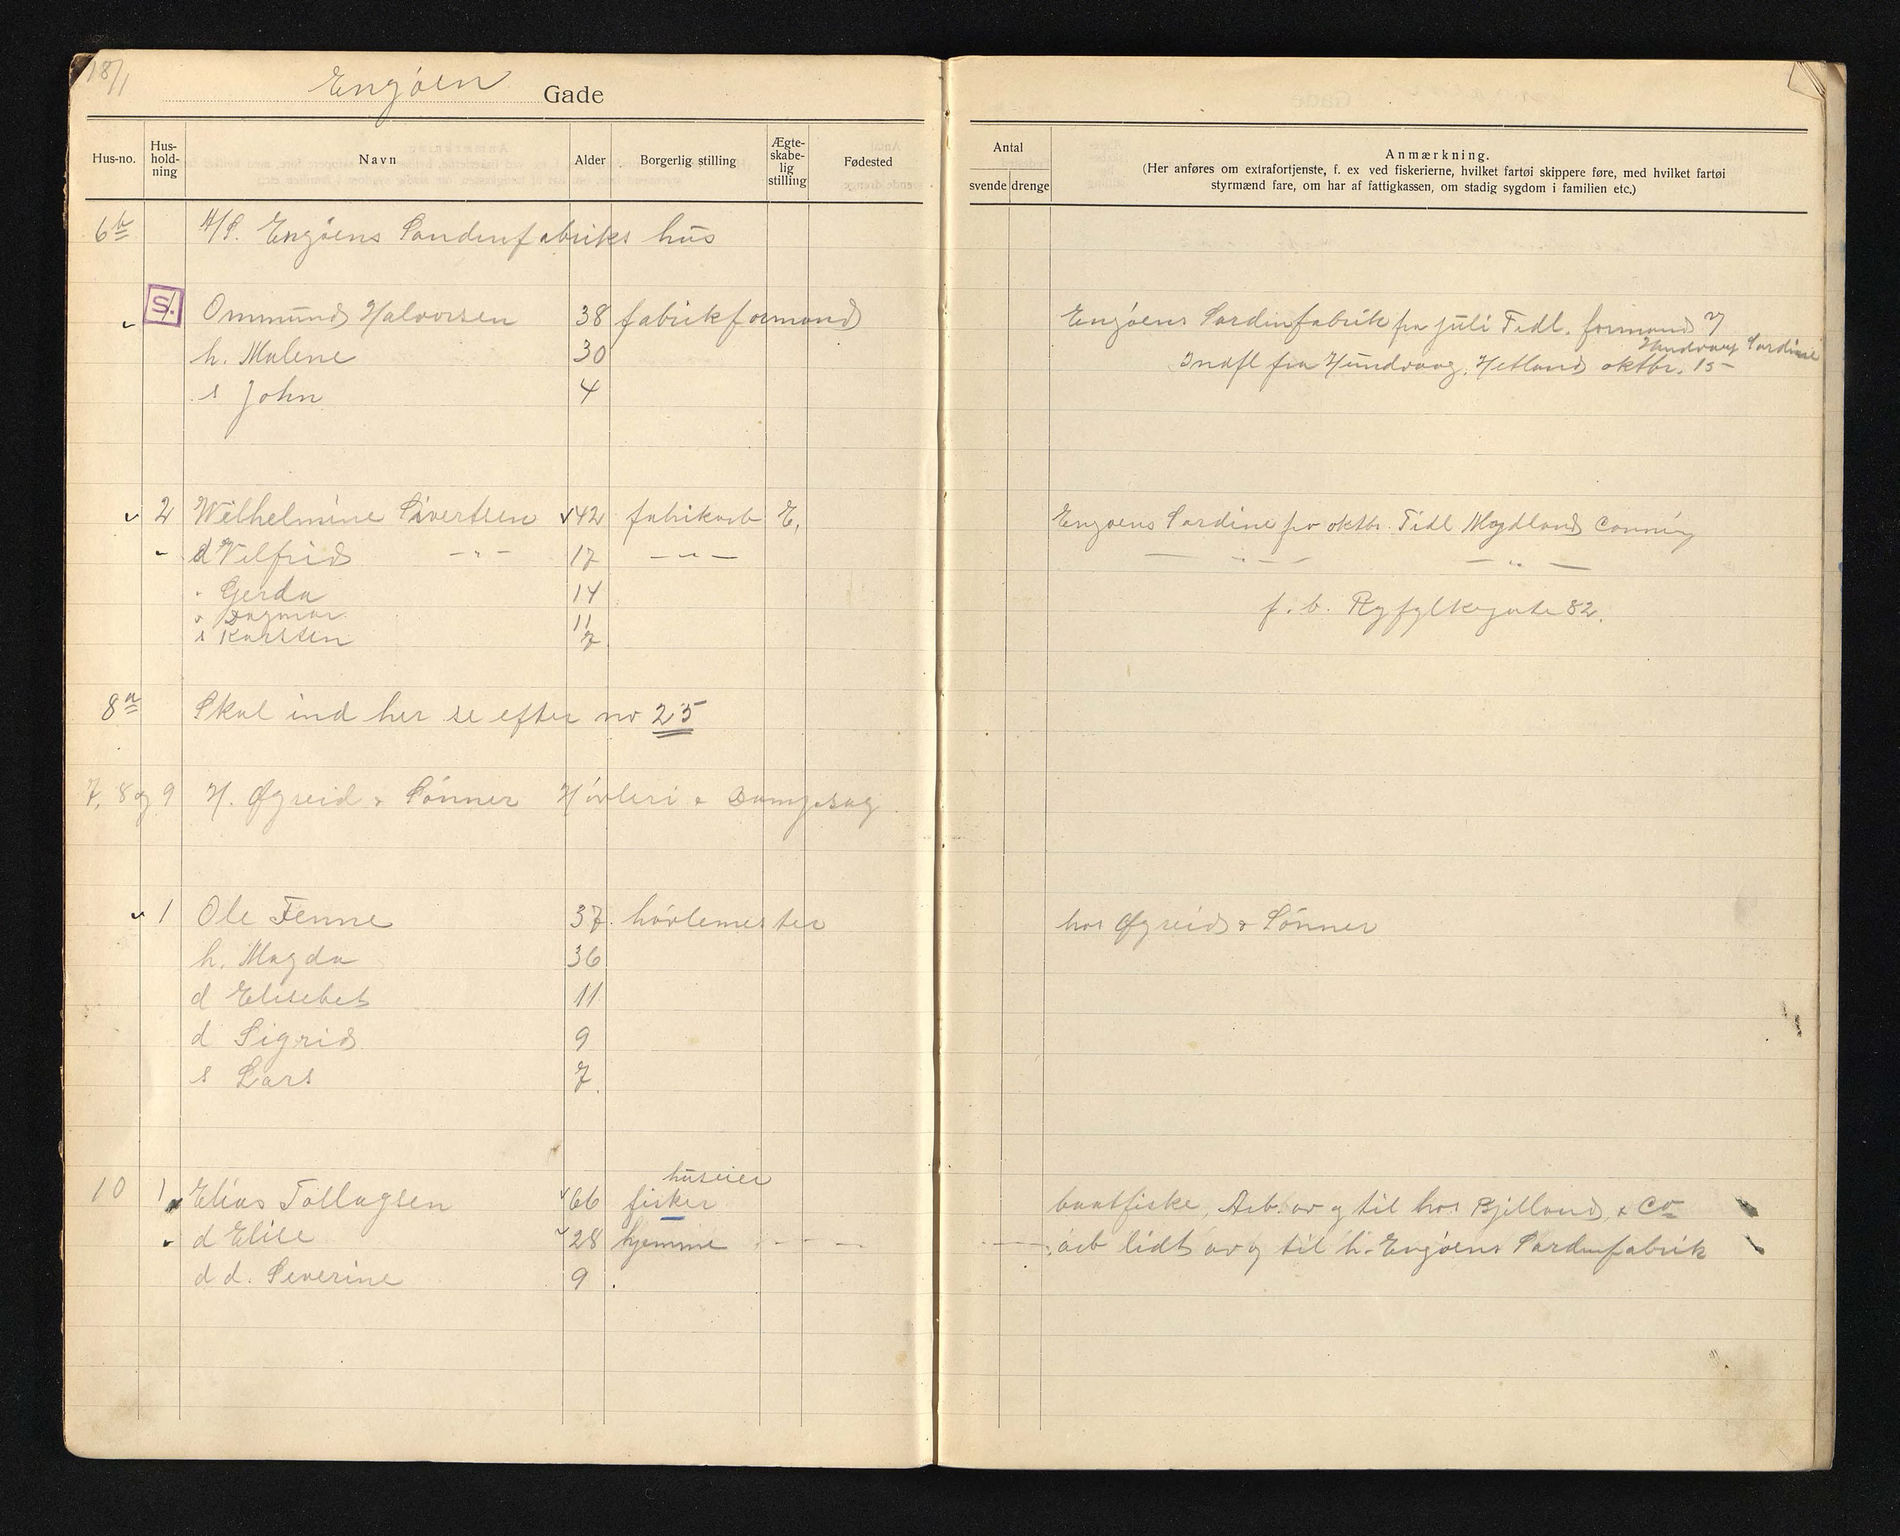 18/1
Engøen Gade
Hus-no.
Hus-
hold-
ning
Navn
Alder
Borgerlig stilling
Ægte-
skabe-
lig
stilling
Fødested
Antal
svende drenge
Anmærkning.
(Her anføres om extrafortjenste, f. ex ved fiskerierne, hvilket fartøi skippere føre, med hvilket fartøi
styrmænd fare, om har af fattigkassen, om stadig sygdom i familien etc.)
6b A/S. Engøens Sardinfabriks hus
S/. Ommund Halvorsen 38 fabrikformand Engøens Sardinfabrik fra juli Tidl. formand v
Hundvaag Sardine
h. Malene 30 Indfl fra Hundvaag, Hetland oktbr. 15
s John 4
2 Wilhelmine Sivertsen 42 fabrikarb E. Engøens Sardine fra oktbr. Tidl Mydland Canning
d Vilfrid - " - 17 - " - - " - - " -
" Gerda 14
f. b. Ryfylkegate 82.
" Dagmar 11
s Karsten 7
8a Skal ind her se efter no 25
7, 8 og 9 H. Øgreid & Sønner Høvleri & Dampsag
1 Ole Tenne 37 høvlemester hos Øgreid & Sønner
h. Magda 36
d Elisebet 11
d Sigrid 9
s Lars 7
huseier
10 1 Elias Tollagsen 66 fisker baatfiske, Arb. av og til hos Bjelland & Co
d Elise 28 hjemme arb lidt av og til h. Engøens Sardinfabrik
d d. Severine 9